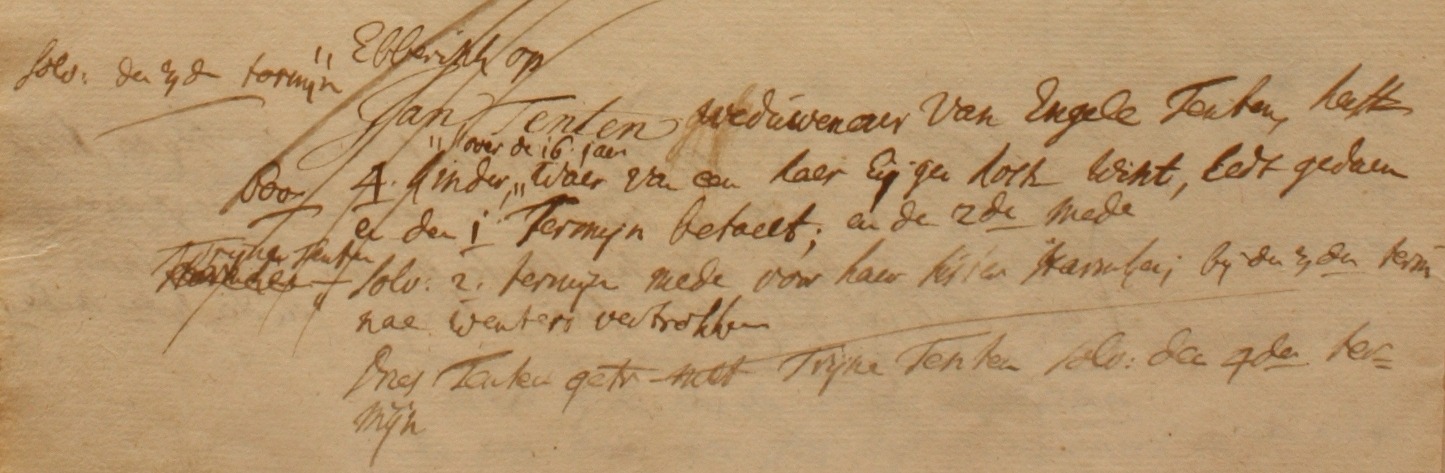 Ebberink op
solv: den 3den termijn
Jan Tenten weduwenaer van Engele Tenten, heeft
over de 16 jaer
4. kinder, waer van een haer Eijgen kost wint, Eedt gedaen
en den 1 Termijn betaelt; en de 2de mede
Trijne Tenten
solv: 2. termijn mede voor haer bij den 3den term
nae wenters vertrokken
Dries Tenten getr Trijne Tenten solv: den 4den ter=
mijn